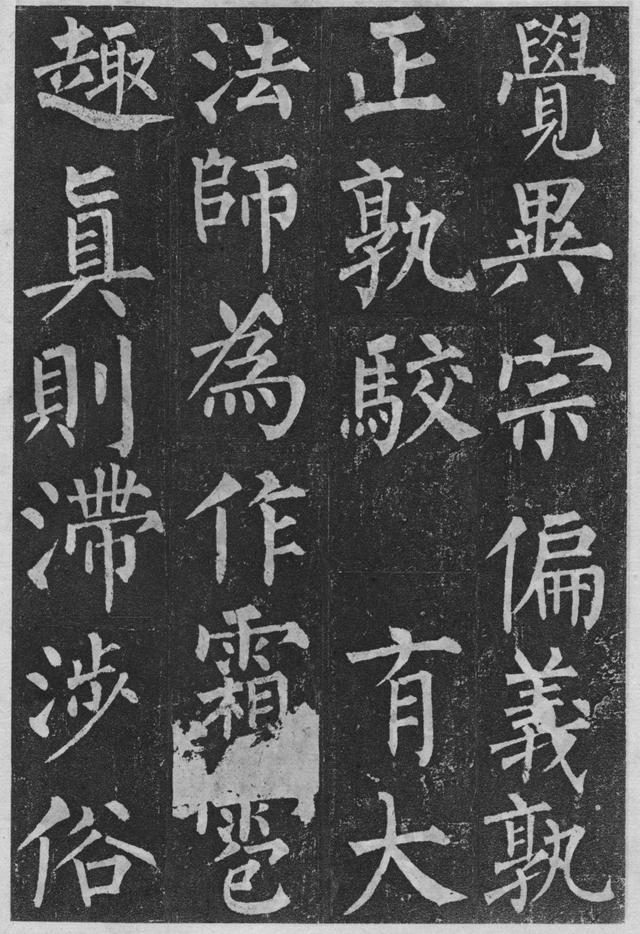 覺異宗偏義孰
正孰駮 有大
法師為作霜雹
趣眞則滯涉俗